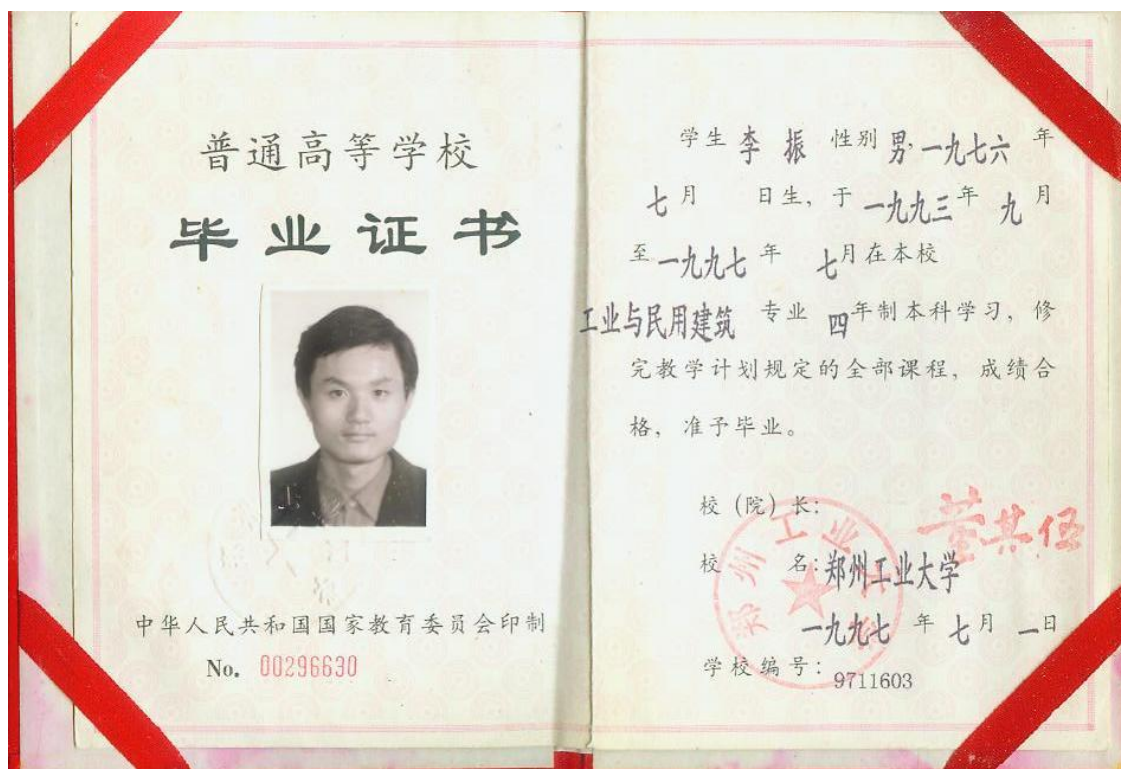 普通高等学校
毕业证书
中华人民共和国国家教育委员会印制
No. 00296630
学生 李振 性别 男,一九七六 年
七月 日生，于 一九九三年 九月
至一九九七 年 七月在本校
工业与民用建筑 专业 四年制本科学习，修
完教学计划规定的全部课程，成绩合
格，准予毕业。
校（院）长：
董其伍
校 名：郑州工业大学
一九九七 年 七月 一日
学校编号：9711603
郑州工业大学